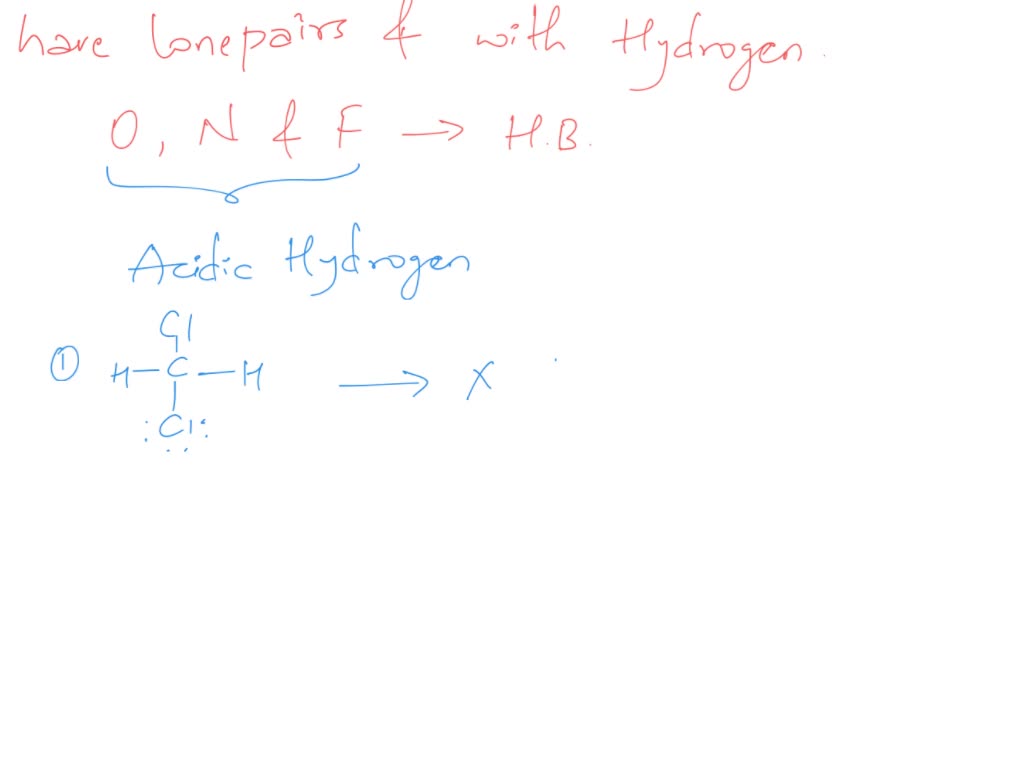 have lonepairs & with Hydrogen.
O, N & F → H.B.
Acidic Hydrogen
Cl
① H—C—H → X
:Cl: